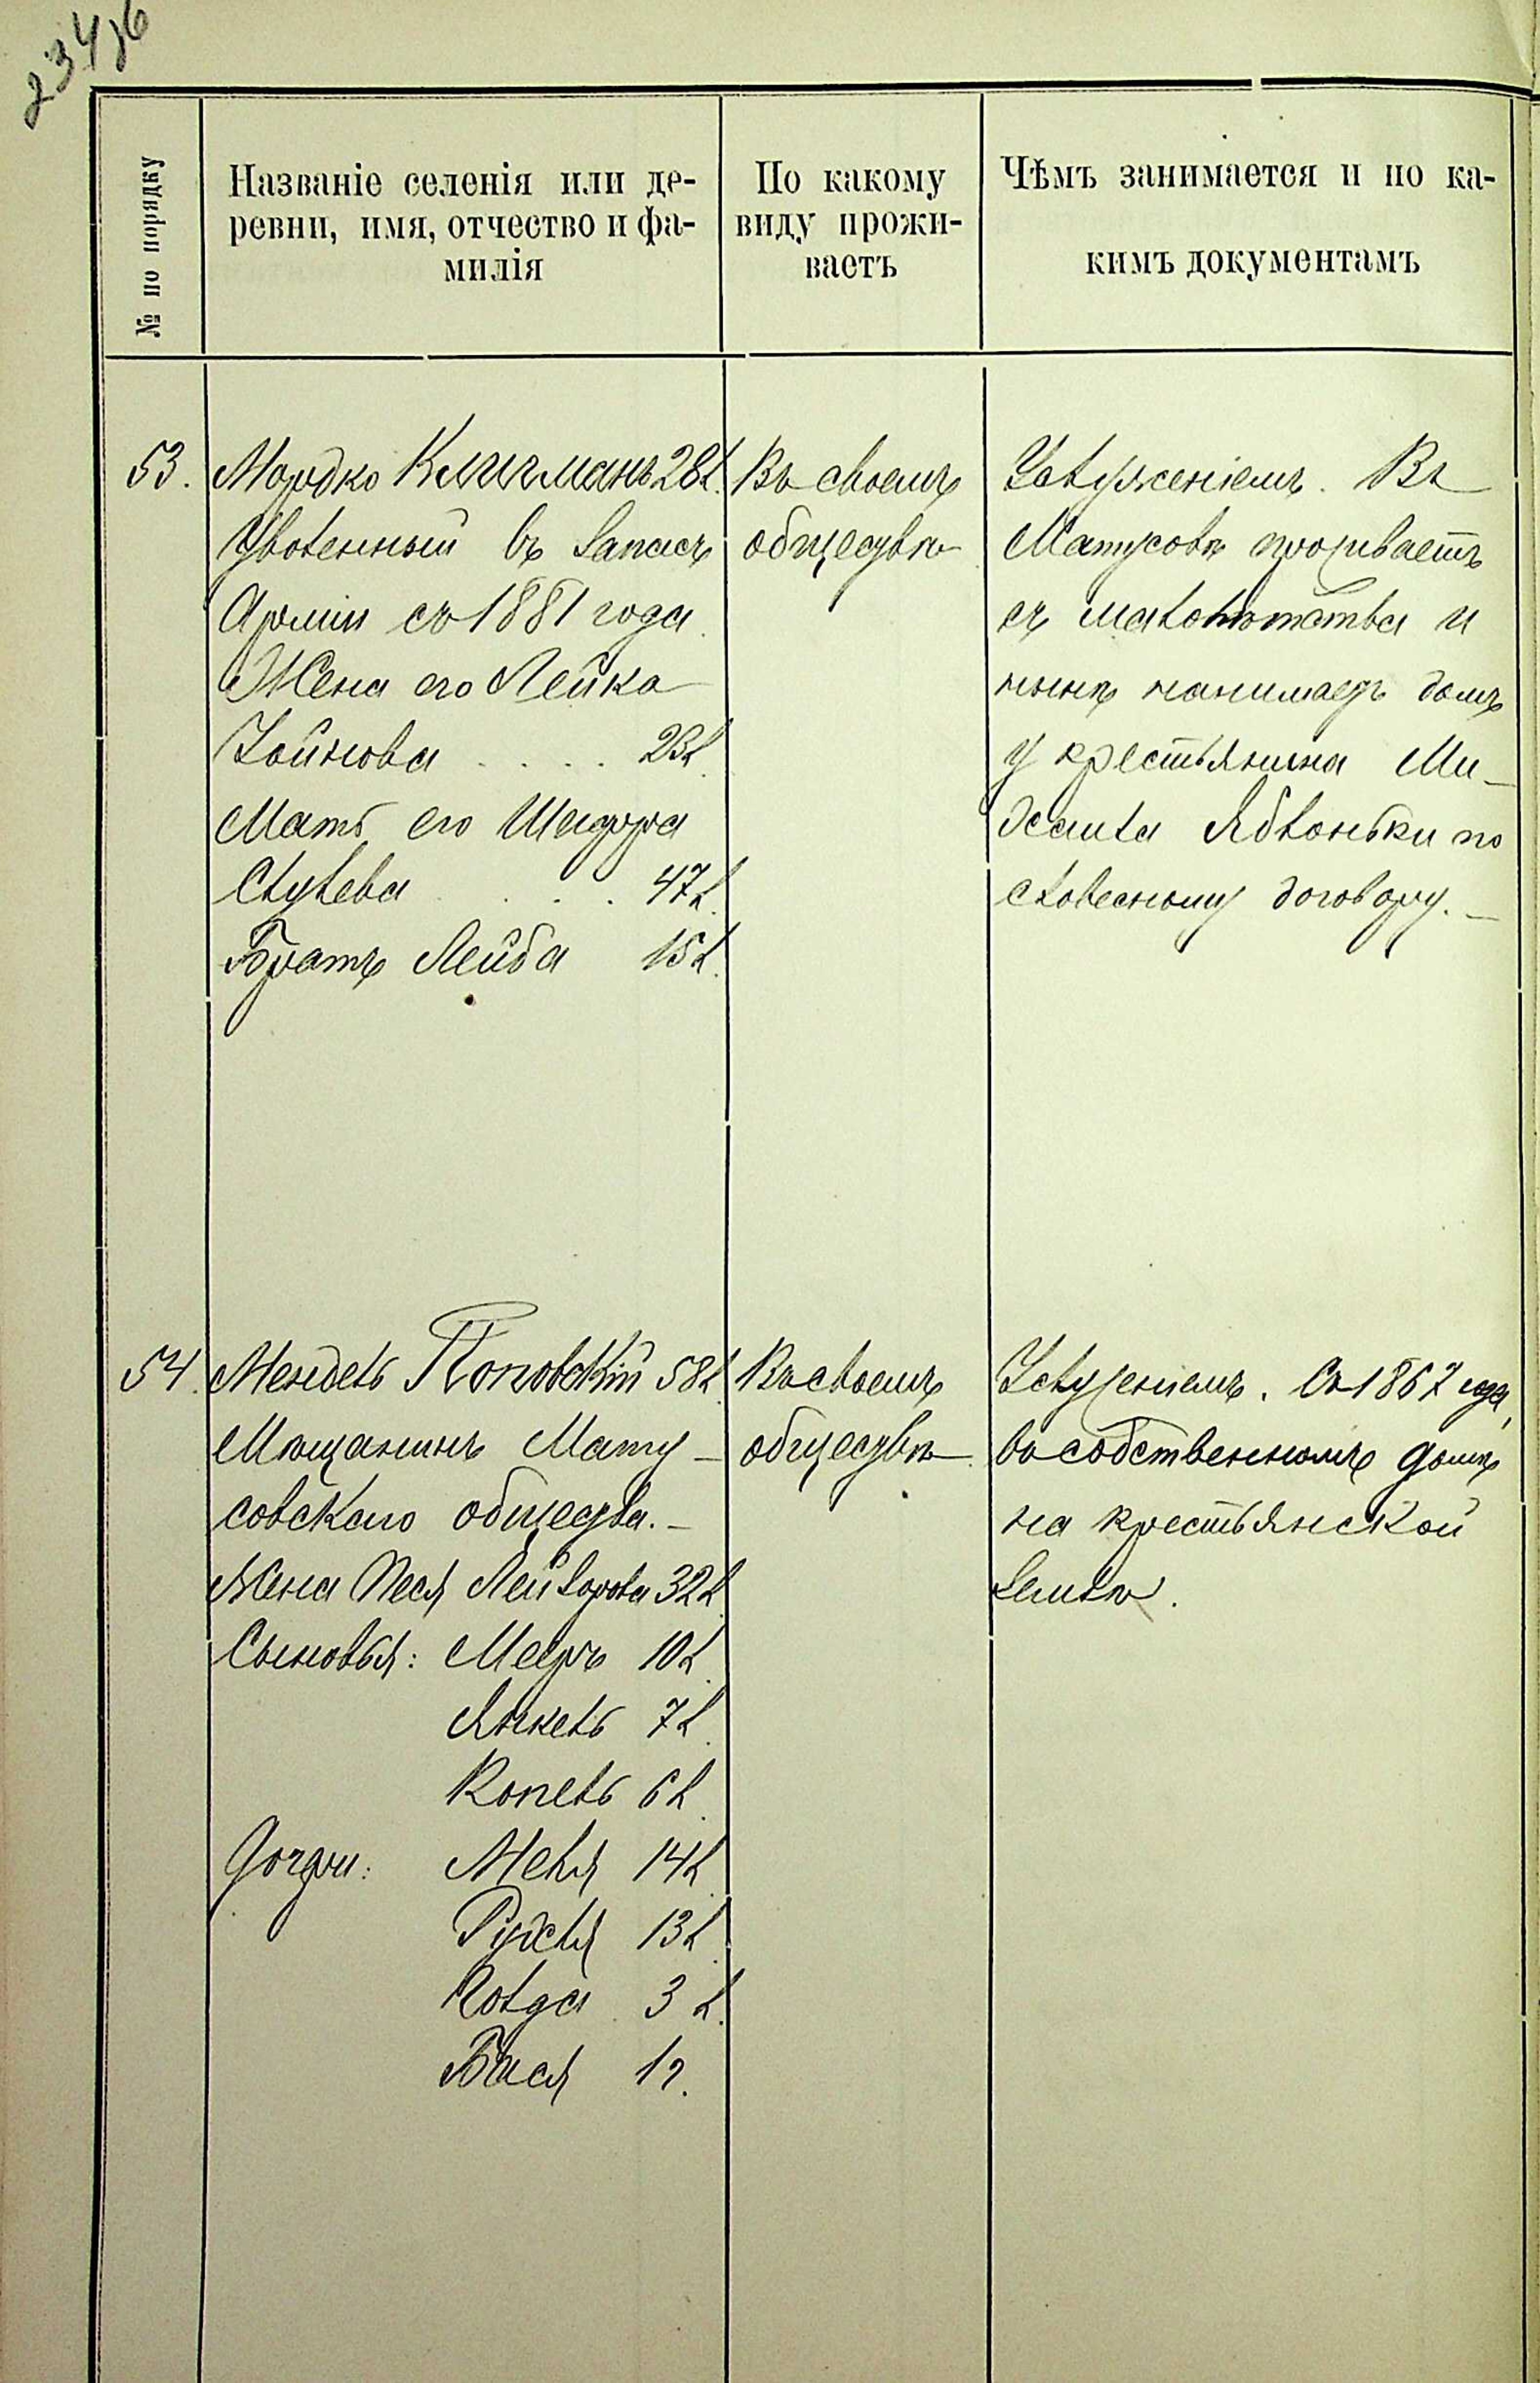 234об
№ по порядку
Названіе селенія или де-
ревни, имя, отчество и фа-
милія
По какому
виду прожи-
ваетъ
Чѣмъ занимается и по ка-
кимъ документамъ
53.
Мордко Клигманъ 28 л.
Уволенный въ запасъ
Арміи съ 1881 года.
Жена его Лейка
. . . . 23 л.
Мать его
. . . 47 л.
Братъ Лейба 15 л.
Въ своемъ
обществѣ
Услуженіемъ. Въ
Матусовѣ проживаетъ
съ малолѣтства и
нынѣ нанимаетъ домъ
у крестьянина Ми-
хаила Яблоньки по
словесному договору. —
54.
Мендель Поповскій 58 л.
Мѣщанинъ Мату-
совскаго общества. —
Жена Песя Лейзорова 32 л.
Сыновья: Мееръ 10 л.
Янкель 7 л.
Копель 6 л.
Дочери: 14 л.
Рухля 13 л.
Голда 3 л.
Бася 1 г.
Въ своемъ
обществѣ.
Услуженіемъ. Съ 1867 года,
въ собственномъ домѣ
на крестьянской
землѣ.